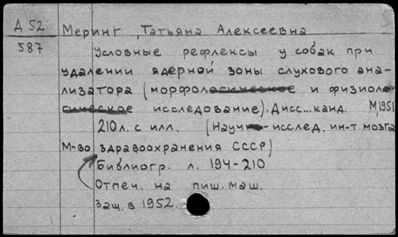 Д 52
587
Меринг, Татьяна Алексеевна
Условные рефлексы у собак при
удалении ядерной зоны слухового ана-
лизатора (морфологическое и физиоло-
гическое исследование). Дисс... канд. М, 1951
210 л. с илл. (Научно-исслед. ин-т мозга
М-во здравоохранения СССР)
Библиогр. л. 194-210
Отпеч. на пиш. маш.
Защ. в 1952.